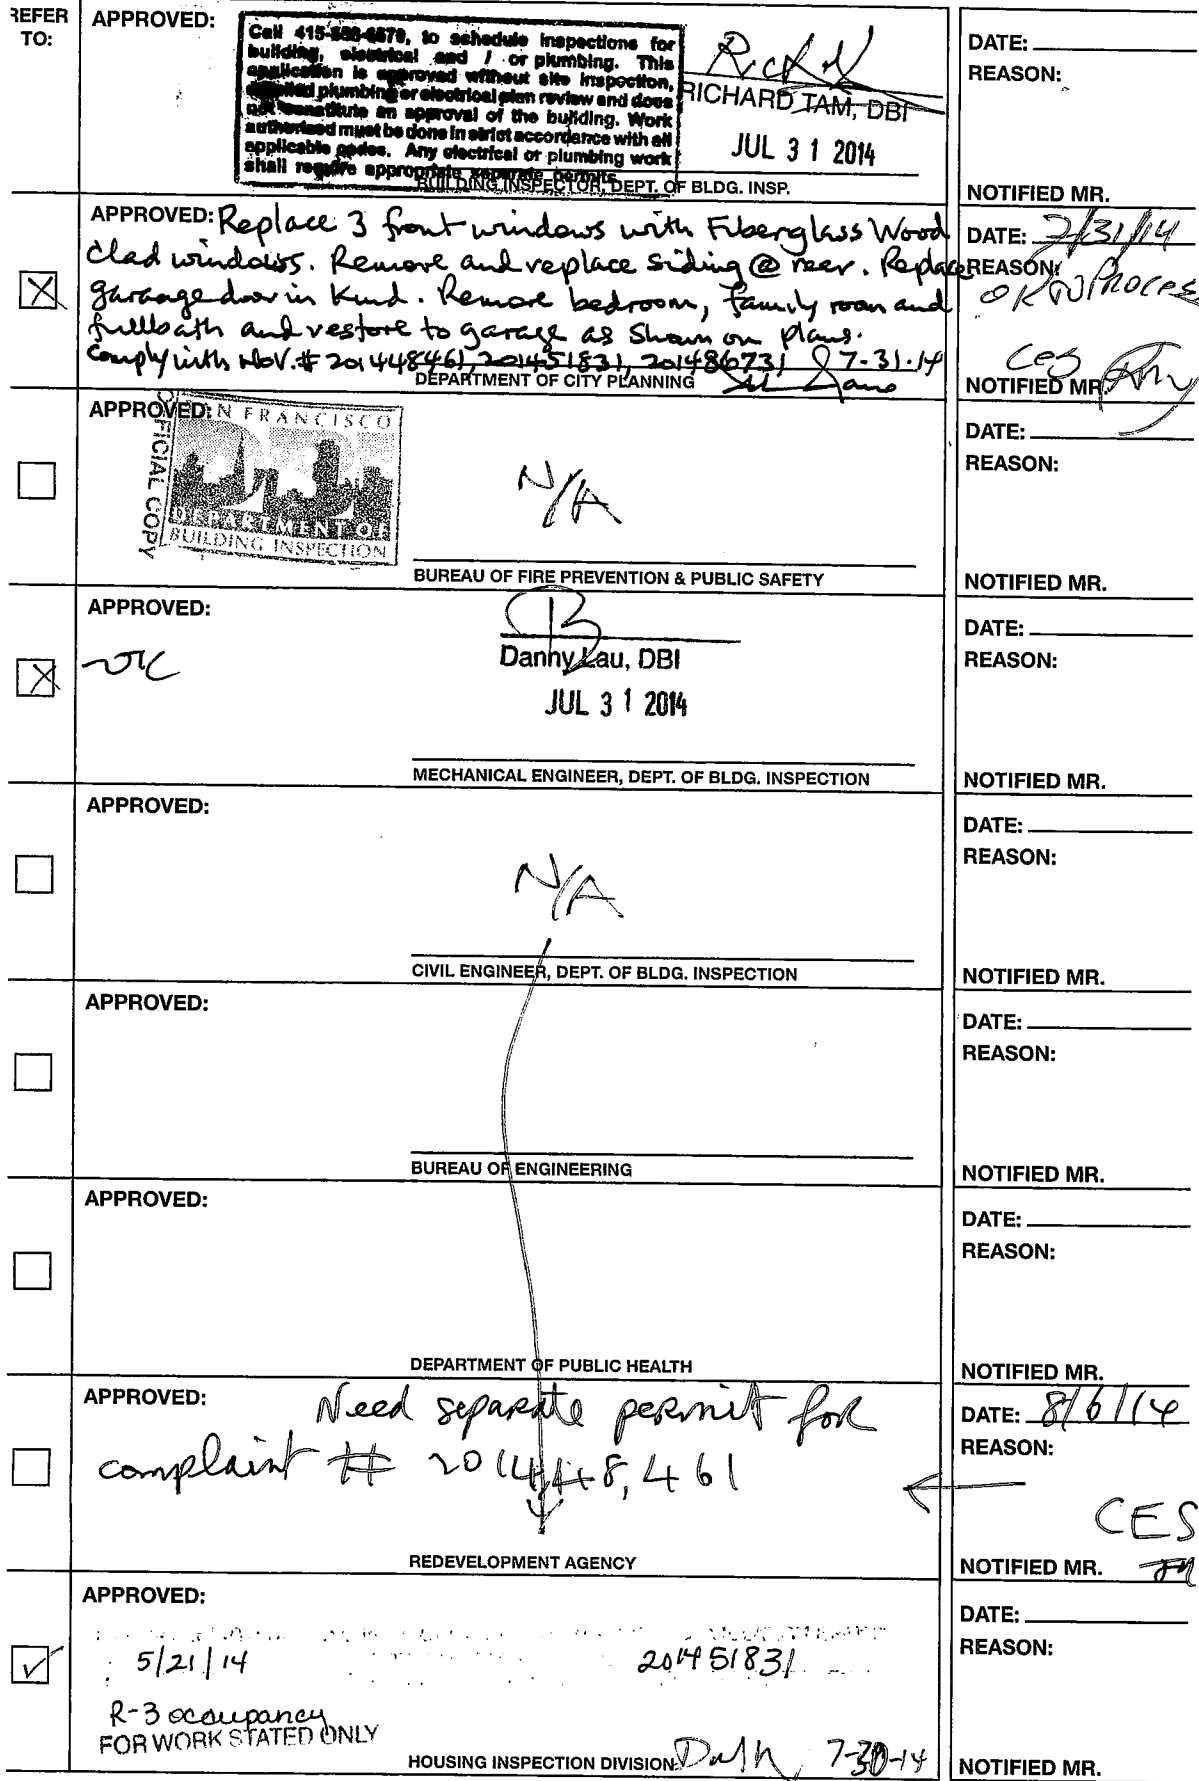 REFER
TO:
APPROVED:
Call 415-558-6570, to schedule inspections for
building, electrical and / or plumbing. This
application is approved without site inspection,
detailed plumbing or electrical plan review and does
not constitute an approval of the building. Work
authorized must be done in strict accordance with all
applicable codes. Any electrical or plumbing work
shall require appropriate separate permits
RICHARD TAM, DBI
JUL 31 2014
BUILDING INSPECTOR, DEPT. OF BLDG. INSP.
DATE:
REASON:
NOTIFIED MR.
APPROVED: Replace 3 front windows with Fiberglass Wood
Clad windows. Remove and replace siding @ rear. Replace
garage door in kind. Remove bedroom, family room and
full bath and restore to garage as shown on plans.
Comply with NOV. # 201448461, 201451831, 201486731 7-31-14
DEPARTMENT OF CITY PLANNING
DATE: 7/31/14
REASON:
OK TO PROCESS
CES
NOTIFIED MR.
APPROVED:
SAN FRANCISCO
OFFICIAL COPY
DEPARTMENT OF
BUILDING INSPECTION
N/A
BUREAU OF FIRE PREVENTION & PUBLIC SAFETY
DATE:
REASON:
NOTIFIED MR.
APPROVED:
OK
Danny Lau, DBI
JUL 31 2014
MECHANICAL ENGINEER, DEPT. OF BLDG. INSPECTION
DATE:
REASON:
NOTIFIED MR.
APPROVED:
N/A
CIVIL ENGINEER, DEPT. OF BLDG. INSPECTION
DATE:
REASON:
NOTIFIED MR.
APPROVED:
BUREAU OF ENGINEERING
DATE:
REASON:
NOTIFIED MR.
APPROVED:
DEPARTMENT OF PUBLIC HEALTH
DATE:
REASON:
NOTIFIED MR.
APPROVED:
Need separate permit for
complaint # 201448,461
REDEVELOPMENT AGENCY
DATE: 8/6/14
REASON:
CES
NOTIFIED MR.
APPROVED:
5/21/14 201451831
R-3 occupancy
FOR WORK STATED ONLY
HOUSING INSPECTION DIVISION 7-30-14
DATE:
REASON:
NOTIFIED MR.